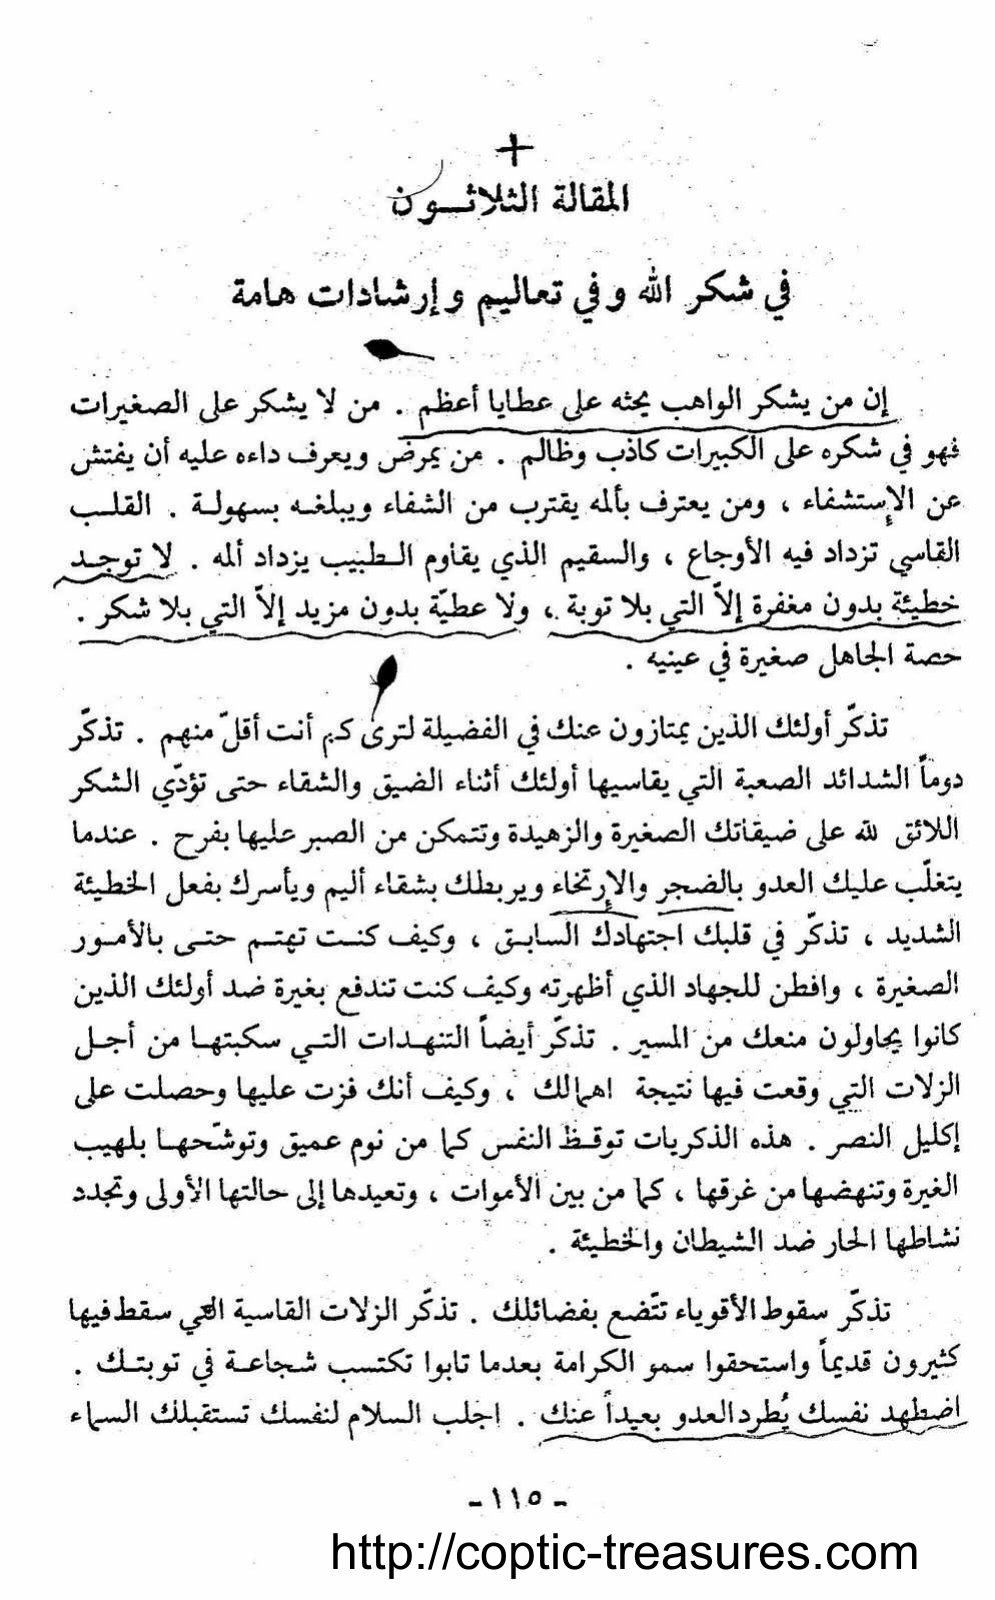 المقالة الثلاثـون
في شكر الله وفي تعاليم وإرشادات هامة
إن من يشكر الواهب يحثه على عطايا أعظم . من لا يشكر على الصغيرات
فهو في شكره على الكبيرات كاذب وظالم . من يمرض ويعرف داءه عليه أن يفتش
عن الإستشفاء ، ومن يعترف بألمه يقترب من الشفاء ويبلغه بسهولة . القلب
القاسي تزداد فيه الأوجاع ، والسقيم الذي يقاوم الطبيب يزداد ألمه . لا توجد
خطيئة بدون مغفرة إلاّ التي بلا توبة ، ولا عطيّة بدون مزيد إلاّ التي بلا شكر .
حصة الجاهل صغيرة في عينيه .
تذكّر أولئك الذين يمتازون عنك في الفضيلة لترى كم أنت أقلّ منهم . تذكّر
دوماً الشدائد الصعبة التي يقاسيها أولئك أثناء الضيق والشقاء حتى تؤدّي الشكر
اللائق لله على ضيقاتك الصغيرة والزهيدة وتتمكن من الصبر عليها بفرح . عندما
يتغلّب عليك العدو بالضجر والإرتخاء ويربطك بشقاء أليم ويأسرك بفعل الخطيئة
الشديد ، تذكّر في قلبك اجتهادك السابق ، وكيف كنت تهتم حتى بالأمور
الصغيرة ، وافطن للجهاد الذي أظهرته وكيف كنت تندفع بغيرة ضد أولئك الذين
كانوا يحاولون منعك من المسير . تذكّر أيضاً التنهدات التي سكبتها من أجل
الزلات التي وقعت فيها نتيجة اهمالك ، وكيف أنك فزت عليها وحصلت على
إكليل النصر . هذه الذكريات توقظ النفس كما من نوم عميق وتوشّحها بلهيب
الغيرة وتنهضها من غرقها ، كما من بين الأموات ، وتعيدها إلى حالتها الأولى وتجدد
نشاطها الحار ضد الشيطان والخطيئة .
تذكّر سقوط الأقوياء تتّضع بفضائلك . تذكّر الزلات القاسية التي سقط فيها
كثيرون قديماً واستحقوا سمو الكرامة بعدما تابوا تكتسب شجاعة في توبتك .
اضطهد نفسك يُطرد العدو بعيداً عنك . اجلب السلام لنفسك تستقبلك السماء
- ١١٥ -
http://coptic-treasures.com